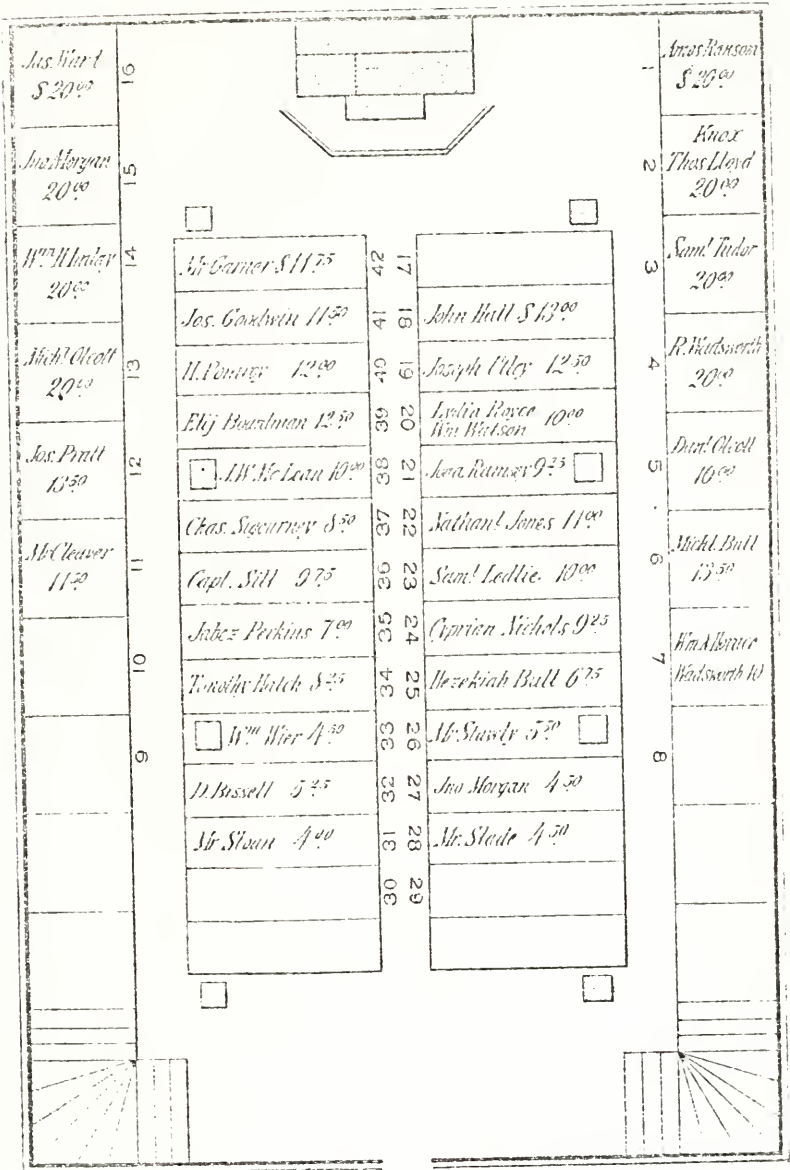 Jas. Ward
$ 20.00
16
Jno Morgan
20.00
15
Wm H Imlay
20.00
14
Michl. Olcott
20.00
13
Jos. Pratt
13.50
12
Mr Cleaver
11.50
11
10
9
Mr Garner $ 11.75
42
Jos. Goodwin 11.50
41
H. Pomroy 12.00
40
Elij Boardman 12.50
39
J.W. Mc Lean 10.00
38
Chas. Sigourney 8.50
37
Capt. Sill 9.75
36
Jabez Perkins 7.00
35
Timothy Hatch 8.25
34
Wm Wier 4.50
33
D. Bissell 5.25
32
Mr Sloan 4.00
31
30
17
18
John Hall $ 13.00
19
Joseph Utley 12.50
20
Lydia Royce
Wm Watson 10.00
21
Jona. Ramsey 9.25
22
Nathanl. Jones 11.00
23
Saml. Ledlie. 10.00
24
Cyprian Nichols 9.25
25
Hezekiah Bull 6.75
26
Mr 5.50
27
Jno Morgan 4.50
28
Mr. Slade 4.50
29
1
Amos Ranson
$ 20.00
2
Knox
Thos Lloyd
20.00
3
Saml. Tudor
20.00
4
R. Wadsworth
20.00
5
Danl. Olcott
10.00
6
Michl. Bull
13.50
7
Wadsworth 10
8